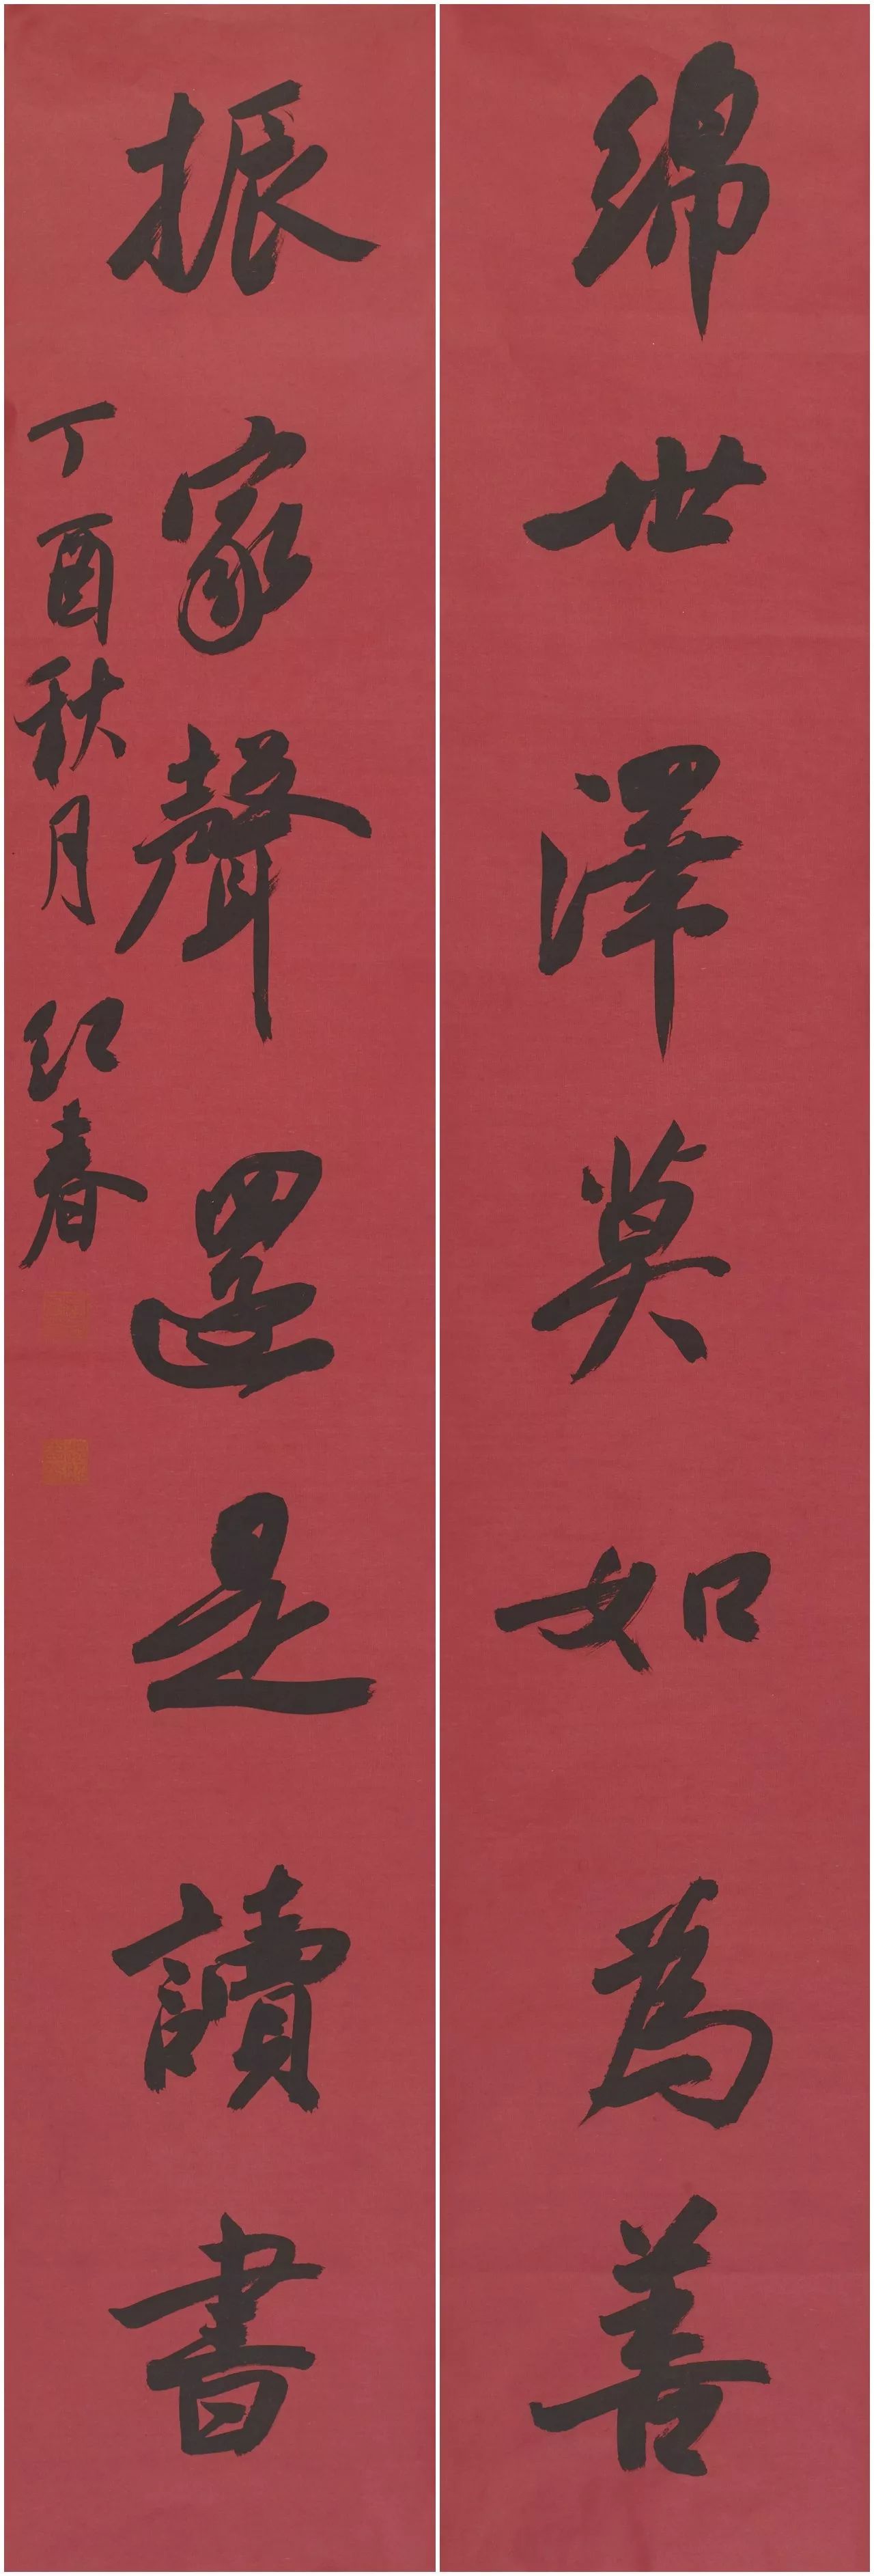 綿世澤莫如為善
振家聲還是讀書
丁酉秋月 红春